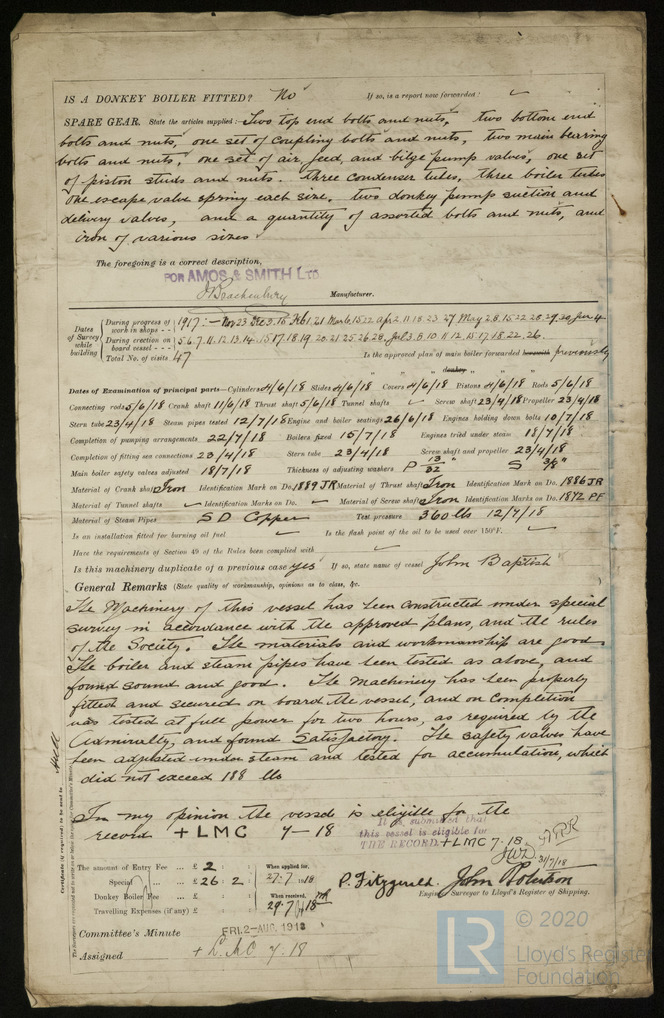 IS A DONKEY BOILER FITTED? No If so, is a report now forwarded?
SPARE GEAR. State the articles supplied:— Two top end bolts and nuts, two bottom end
bolts and nuts, one set of coupling bolts and nuts, two main bearing
bolts and nuts, one set of air, feed, and bilge pump valves, one set
of piston studs and nuts. three condenser tubes, three boiler tubes
one escape valve spring each size, two donkey pump suction and
delivery valves, and a quantity of assorted bolts and nuts, and
iron of various sizes.
The foregoing is a correct description,
FOR AMOS & SMITH LTD
Manufacturer.
Dates of Survey while building
During progress of work in shops - - 1917:- Nov 23 Dec 3.15 Feb 1.21 Mar 6.15.22 Apr 2.11.18.23.27 May 2.8.15.22.28.29.30 June 4
During erection on board vessel - - - 5.6.7.11.12.13.14.15.17.18.19.20.21.25.26.28. Jul 3.8.10.11.12.15.17.18.22.26.
Total No. of visits 47 Is the approved plan of main boiler forwarded herewith previously
" " " donkey " " "
Dates of Examination of principal parts—Cylinders 4/6/18 Slides 4/6/18 Covers 4/6/18 Pistons 4/6/18 Rods 5/6/18
Connecting rods 5/6/18 Crank shaft 11/6/18 Thrust shaft 5/6/18 Tunnel shafts Screw shaft 23/4/18 Propeller 23/4/18
Stern tube 23/4/18 Steam pipes tested 12/7/18 Engine and boiler seatings 26/6/18 Engines holding down bolts 10/7/18
Completion of pumping arrangements 22/7/18 Boilers fixed 15/7/18 Engines tried under steam 18/7/18
Completion of fitting sea connections 23/4/18 Stern tube 23/4/18 Screw shaft and propeller 23/4/18
Main boiler safety valves adjusted 18/7/18 Thickness of adjusting washers P 13/32" S 3/8"
Material of Crank shaft Iron Identification Mark on Do. 1889 JR Material of Thrust shaft Iron Identification Mark on Do. 1886 JR
Material of Tunnel shafts Identification Marks on Do. Material of Screw shafts Iron Identification Marks on Do. 1872 PF
Material of Steam Pipes S D Copper Test pressure 360 lbs 12/7/18
Is an installation fitted for burning oil fuel Is the flash point of the oil to be used over 150°F.
Have the requirements of Section 49 of the Rules been complied with
Is this machinery duplicate of a previous case yes If so, state name of vessel John Baptish
General Remarks (State quality of workmanship, opinions as to class, &c.
The Machinery of this vessel has been constructed under special
survey in accordance with the approved plans, and the rules
of the Society. The materials and workmanship are good.
The boiler and steam pipes have been tested as above, and
found sound and good. The Machinery has been properly
fitted and secured on board the vessel, and on completion
was tested at full power for two hours, as required by the
Admiralty, and found satisfactory. The safety valves have
been adjusted under steam and tested for accumulation, which
did not exceed 188 lbs
In my opinion the vessel is eligible for the
record + LMC 7-18
It is submitted that
this vessel is eligible for
THE RECORD. + LMC 7.18
31/7/18
Hull
The amount of Entry Fee ... £ 2 : : When applied for,
Special ... £ 26 : 2 : 27.7.1918
Donkey Boiler Fee ... £ : : When received,
Travelling Expenses (if any) £ : : 29.7.1918
P. Fitzgerald. John Robinson
Engineer Surveyor to Lloyd's Register of Shipping.
Committee's Minute FRI. 2-AUG. 1918
Assigned + L.M.C. 7.18
© 2020
LR Lloyd's Register
Foundation